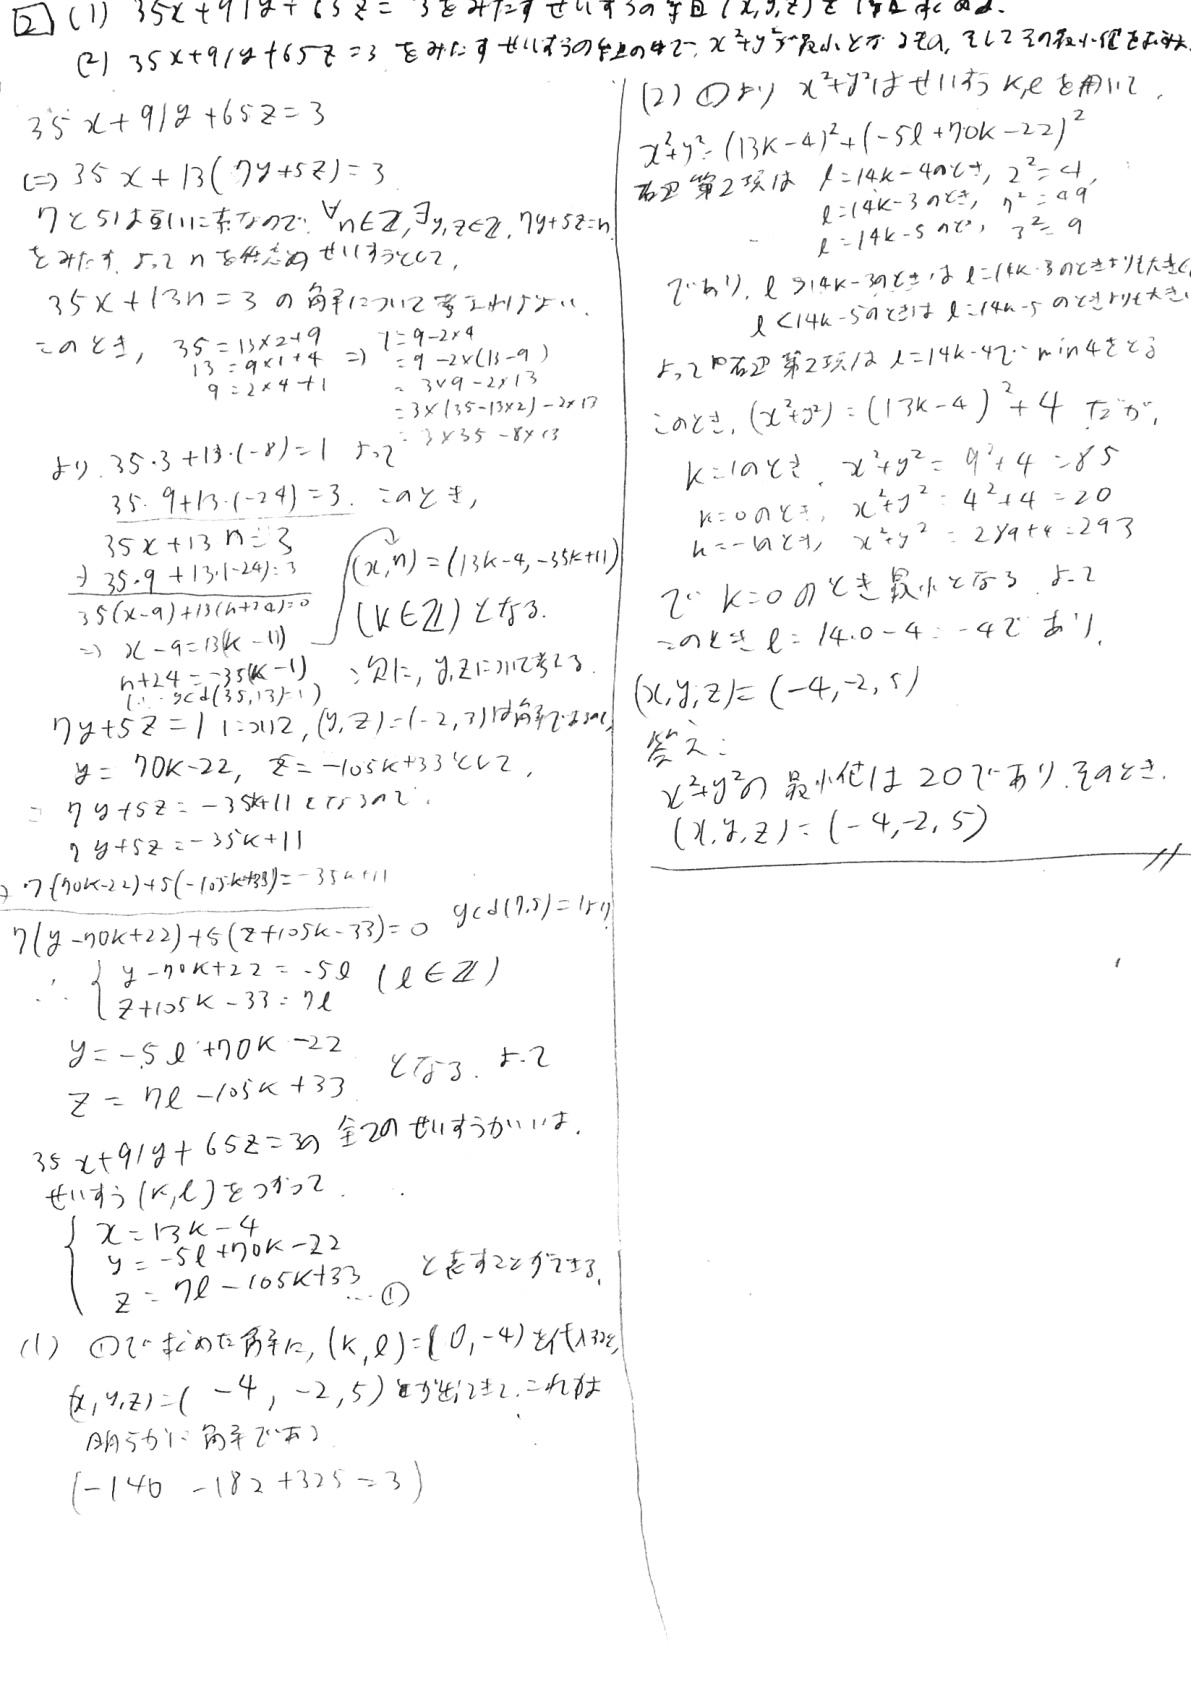 [2] (1) 35x+91y+65z=3をみたすせいすうの組(x,y,z)を1組求めよ.
(2) 35x+91y+65z=3をみたすせいすうの組の中で, x²+y²が最小となるもの, そしてその最小値をもとめよ
35x+91y+65z=3
(=)35x+13(7y+5z)=3
7と5は互いに素なので, ∀n∈ℤ,∃y,z∈ℤ, 7y+5z=n
をみたす. よってnを任意のせいすうとして,
35x+13n=3の解について考えればよい.
このとき, 35=13×2+9
13=9×1+4
9=2×4+1
⇒ 1=9-2×4
=9-2×(13-9)
=3×9-2×13
=3×(35-13×2)-2×13
=3×35-8×13
より, 35・3+13・(-8)=1 よって
35・9+13・(-24)=3. このとき,
35x+13n=3
-) 35・9+13・(-24)=3
35(x-9)+13(n+24)=0
⇒ x-9=13(k-1)
n+24=-35(k-1)
(∵gcd(35,13)=1)
(x,n)=(13k-4,-35k+11)
(k∈ℤ)となる.
次に, y,zについて考える.
7y+5z=1について, (y,z)=(-2,3)は解であるので,
y=70k-22, z=-105k+33として,
7y+5z=-35k+11となるので.
7y+5z=-35k+11
-) 7(70k-22)+5(-105k+33)=-35k+11
7(y-70k+22)+5(z+105k-33)=0 gcd(7,5)=1より
∴ { y-70k+22=-5l (l∈ℤ)
z+105k-33=7l
y=-5l+70k-22
z=7l-105k+33 となる. よって
35x+91y+65z=3の全てのせいすうかいは,
せいすう(k,l)をつかって.
{ x=13k-4
y=-5l+70k-22
z=7l-105k+33 …① と表すことができる.
(1) ①で求めた解に, (k,l)=(0,-4)を代入すると,
(x,y,z)=(-4,-2,5)とが出てきて, これは
明らかに解である
(-140-182+325=3)
(2) ①より x²+y²はせいすうk,lを用いて,
x²+y²=(13k-4)²+(-5l+70k-22)²
右辺第2項は l=14k-4のとき, 2²=4,
l=14k-3のとき, 7²=49
l=14k-5のとき, 3²=9
であり, l>14k-3のときはl=14k-3のときよりも大きく
l<14k-5のときはl=14k-5のときよりも大きい
よって右辺第2項はl=14k-4でmin4をとる
このとき, (x²+y²)=(13k-4)²+4 だが,
k=1のとき, x²+y²=9²+4=85
k=0のとき, x²+y²=4²+4=20
k=-1のとき, x²+y²=289+4=293
でk=0のとき最小となる よって
このときl=14・0-4=-4であり,
(x,y,z)=(-4,-2,5)
答え:
x²+y²の最小値は20であり, そのとき.
(x,y,z)=(-4,-2,5)